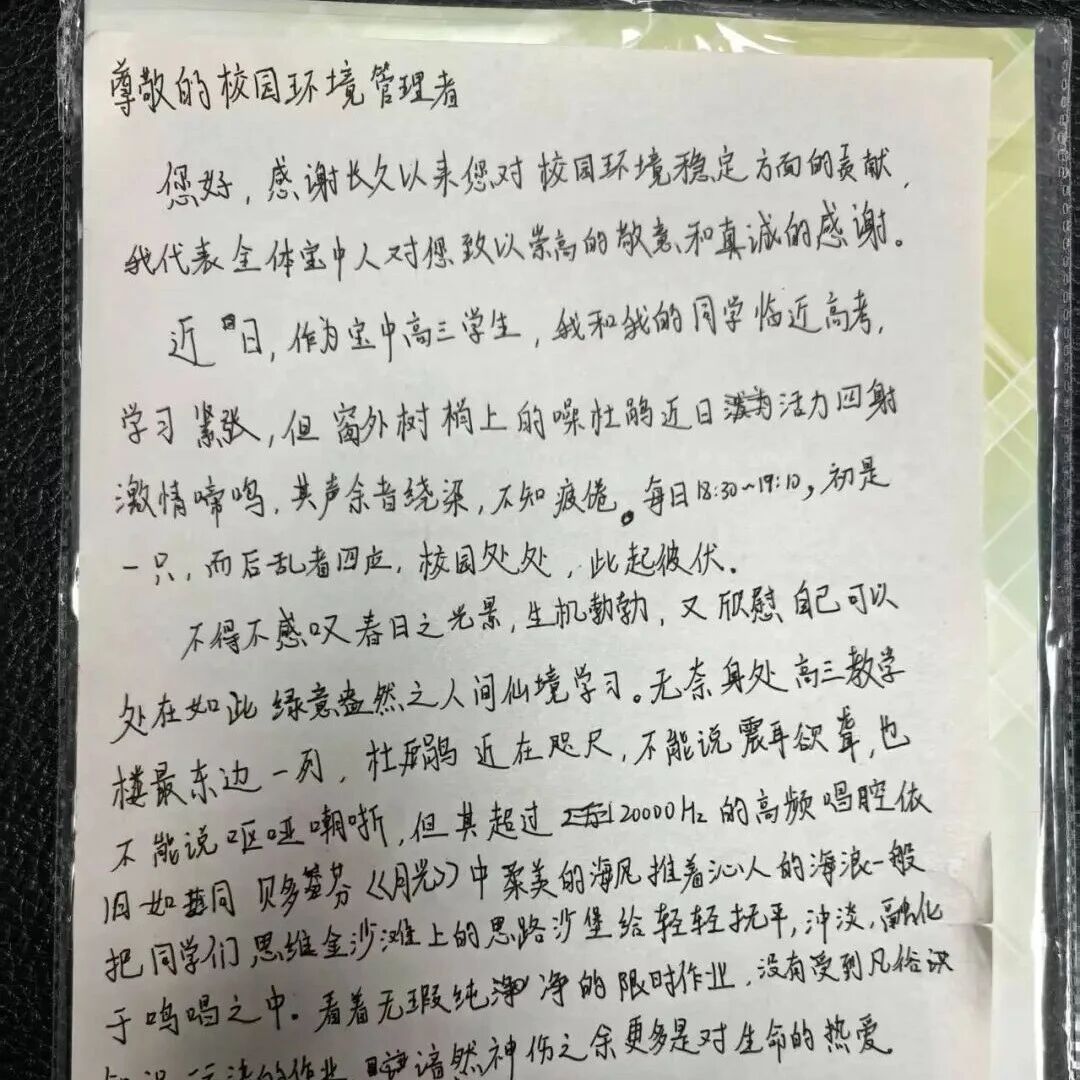 尊敬的校园环境管理者
您好，感谢长久以来您对校园环境稳定方面的贡献，
我代表全体宝中人对您致以崇高的敬意和真诚的感谢。
近日，作为宝中高三学生，我和我的同学临近高考，
学习紧张，但窗外树梢上的噪杜鹃近日活力四射
激情啼鸣，其声余音绕梁，不知疲倦。每日18:30~19:10，初是
一只，而后乱者四应，校园处处，此起彼伏。
不得不感叹春日之光景，生机勃勃，又欣慰自己可以
处在如此绿意盎然之人间仙境学习。无奈身处高三教学
楼最东边一列，杜鹃近在咫尺，不能说震耳欲聋，也
不能说呕哑嘲哳，但其超过20000Hz的高频唱腔依
旧如同贝多芬《月光》中柔美的海风推着沁人的海浪一般
把同学们思维金沙滩上的思路沙堡给轻轻抚平，冲淡，融化
于鸣唱之中。看着无瑕纯净的限时作业，没有受到凡俗识
谙然神伤之余更多是对生命的热爱。